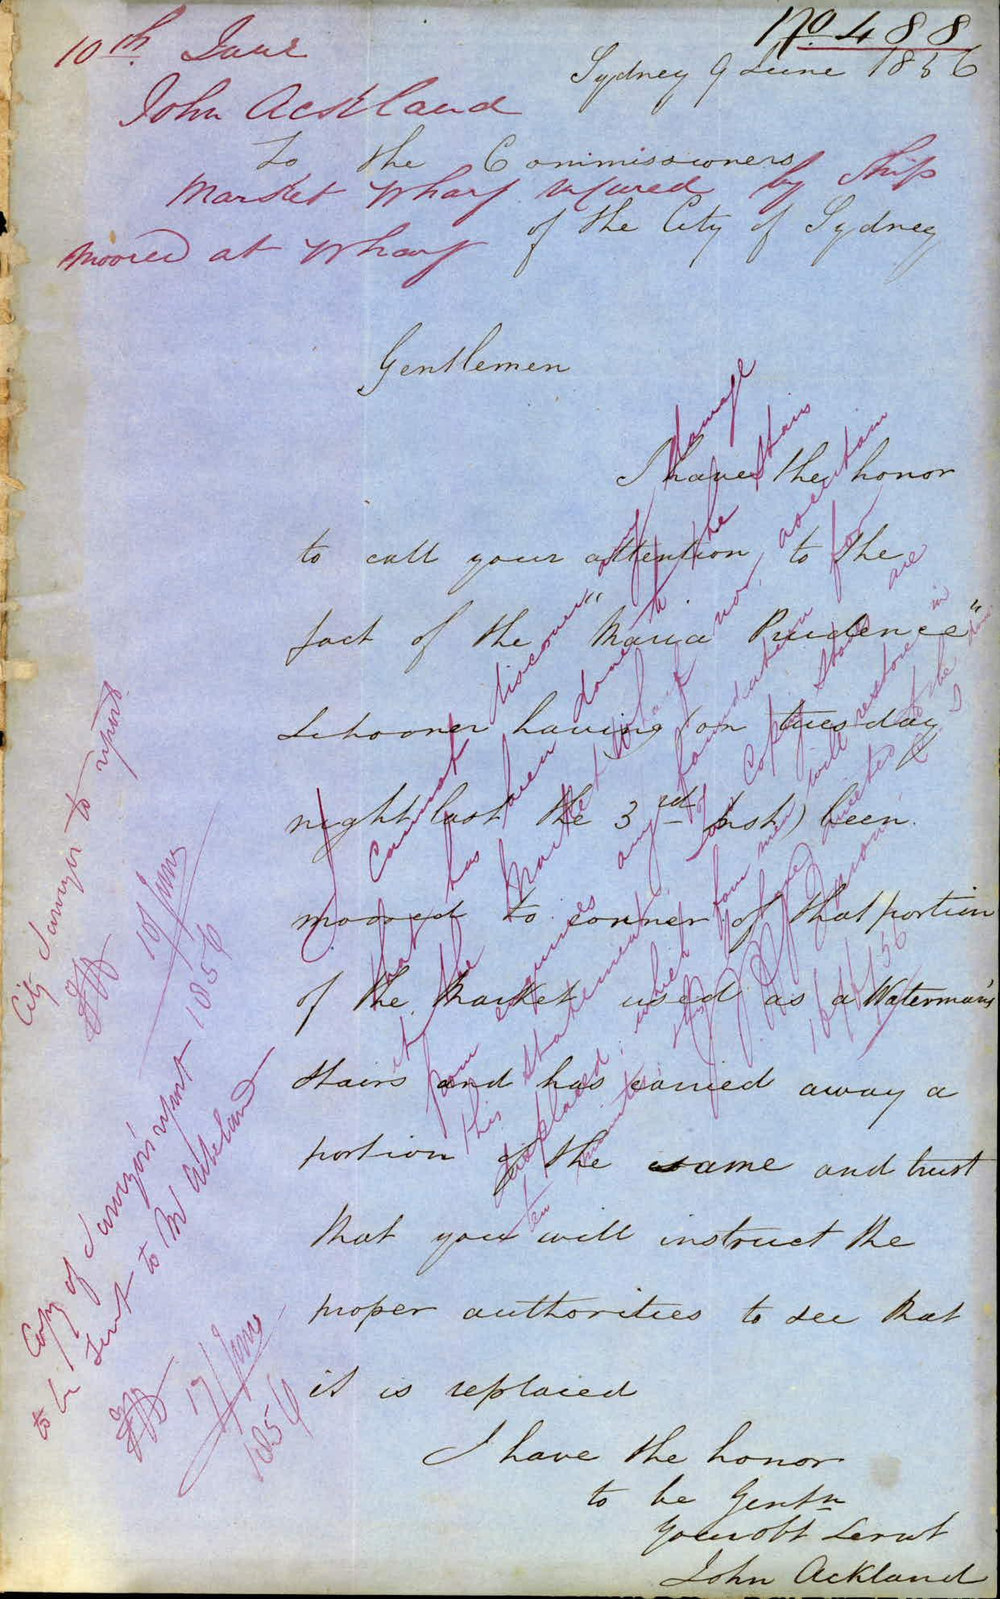 No 488
10th June
Sydney 9 June 1856
John Ackland
To the Commissioners
Market Wharf injured by ship
of the City of Sydney
moored at Wharf
Gentlemen
I have the honor
to call your attention to the
fact of the "Maria Prudence"
Schooner having (on tuesday
night last the 3rd Inst) been
moored to corner of that portion
of the Market used as a Waterman's
Stairs and has carried away a
portion of the same and trust
that you will instruct the
proper authorities to see that
it is replaced
I have the honor
to be Gentn
Your obt Servt
John Ackland
I cannot discover any damage
that has been done to the Stairs
at the Market Wharf nor ascertain
from enquiries any foundation for
this statement. Coping Stones are
displaced, which will restore in
ten minutes. I have directed to be
16/6/56
City Surveyor to report
10/June
1856
Copy of Surveyor's report
to be sent to Mr Ackland
17/June
1856